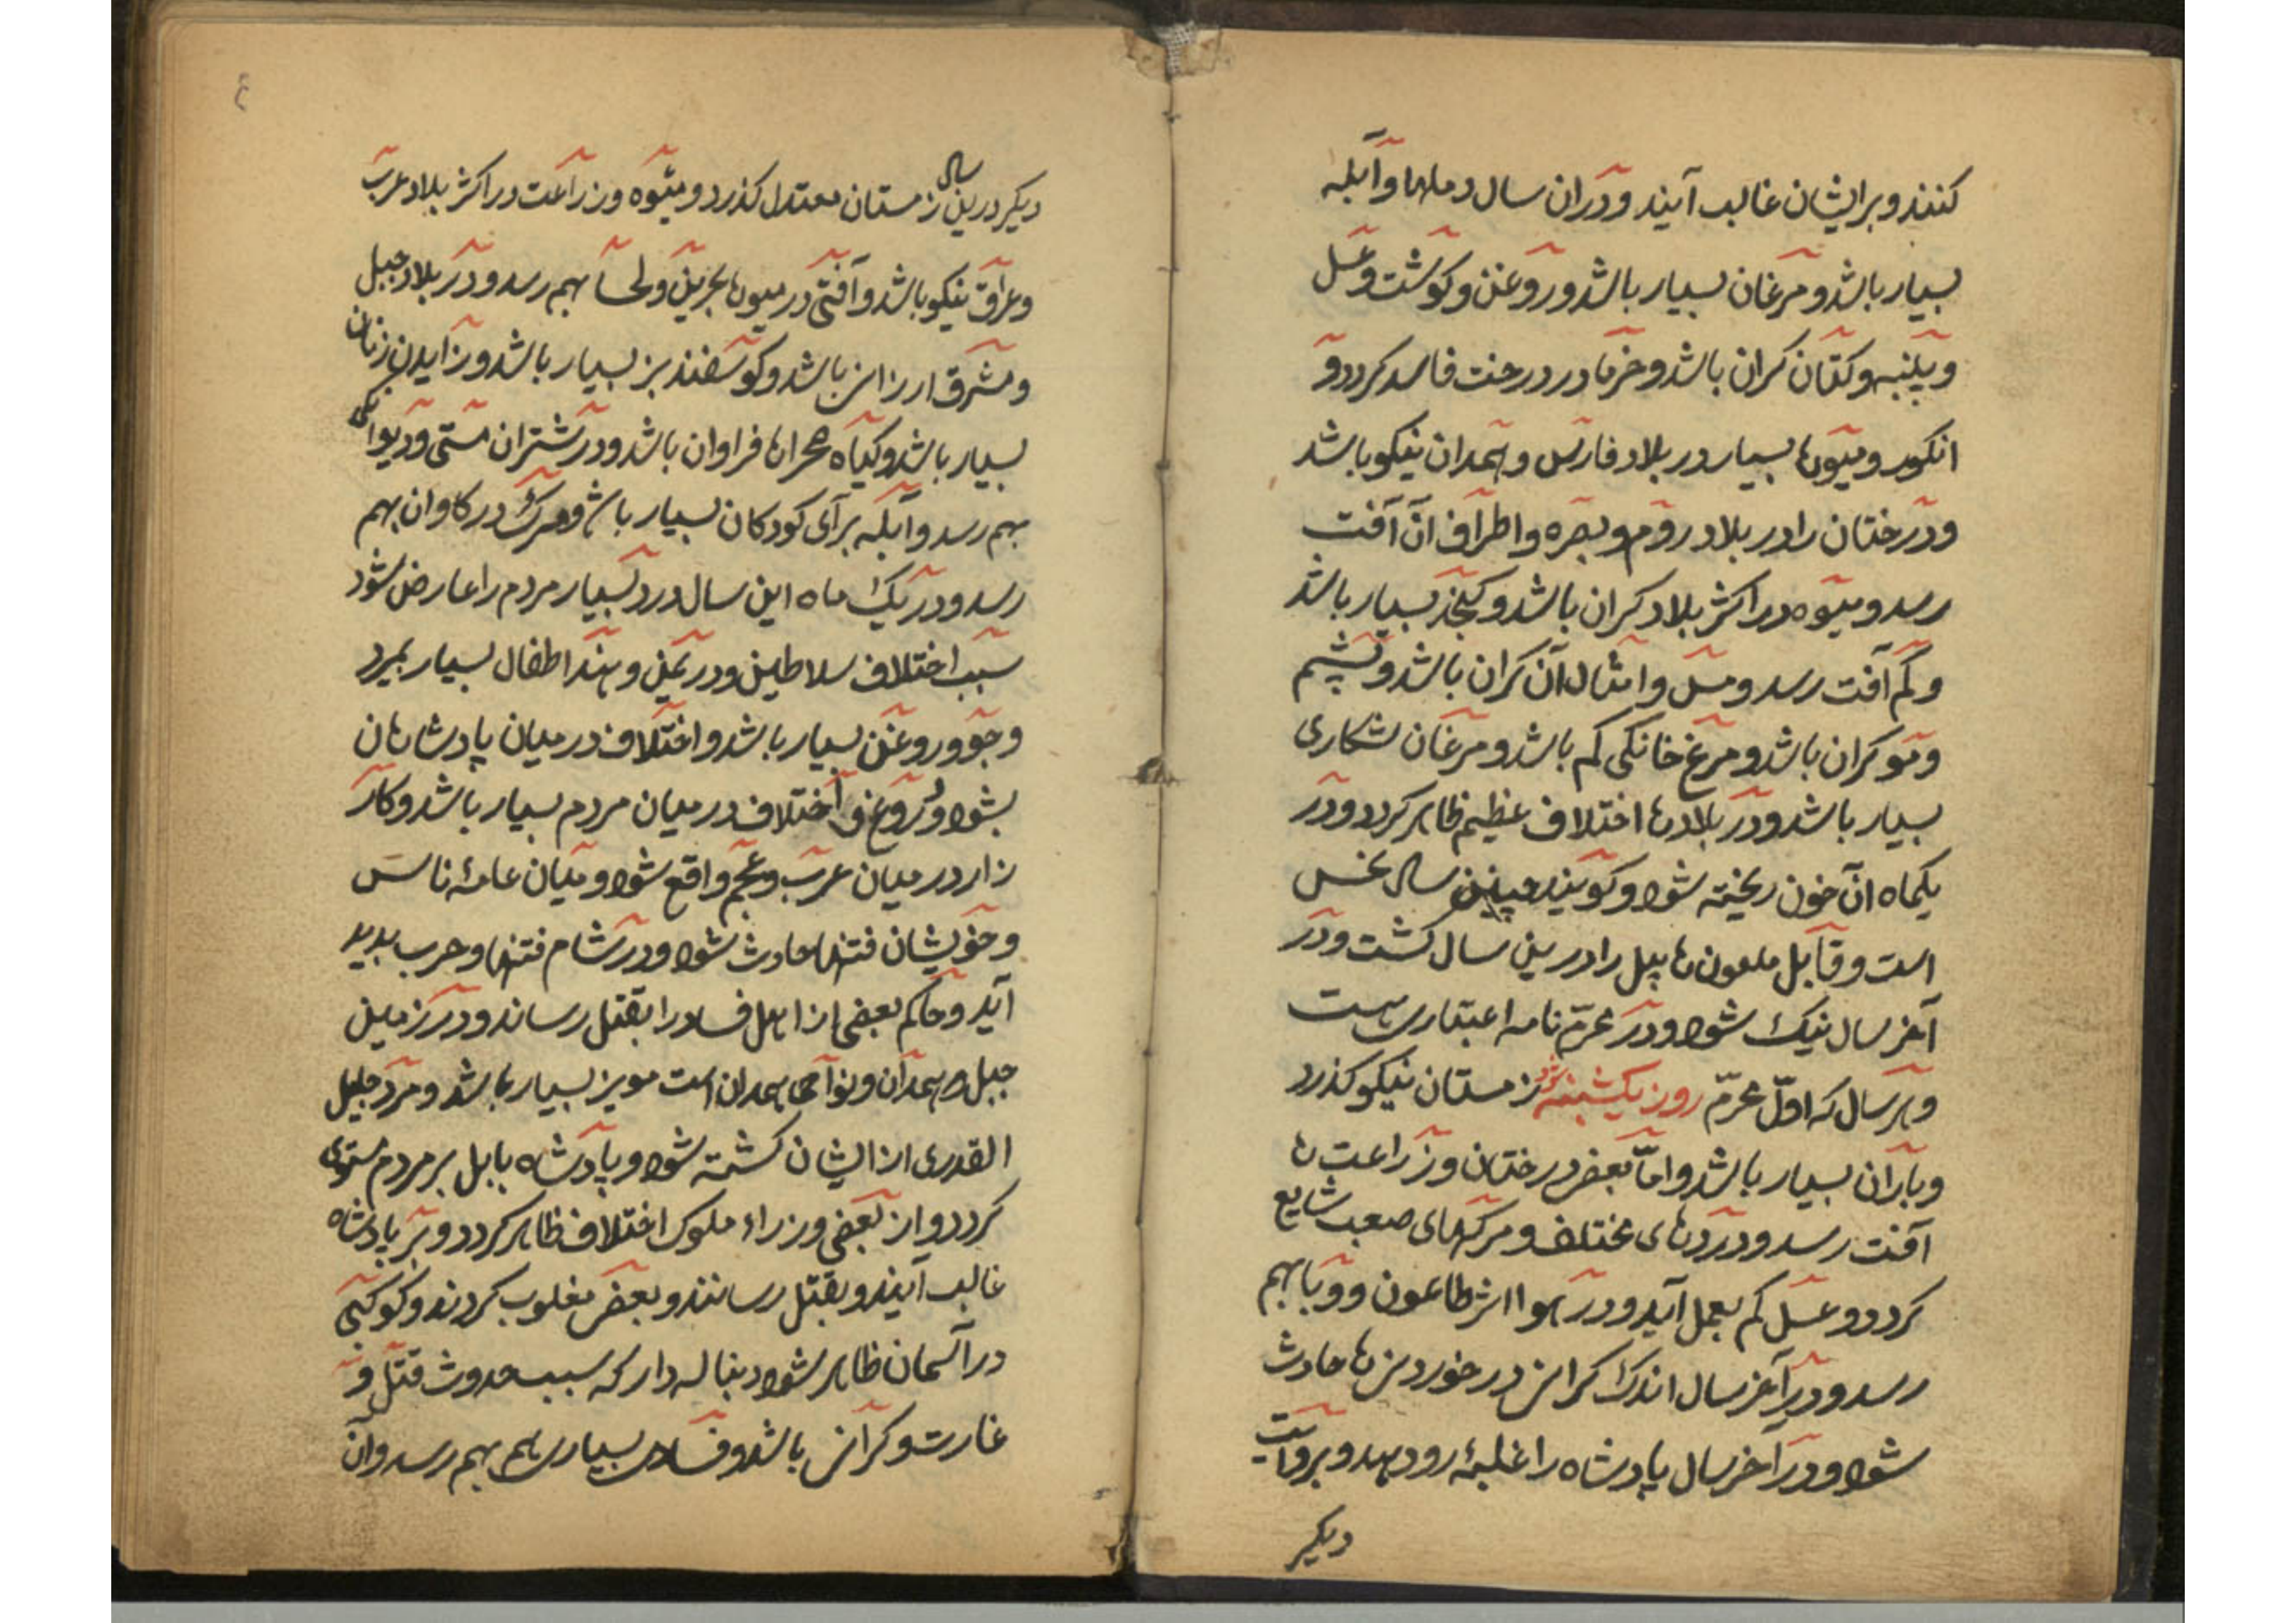 کنند و بر ایشان غالب آیند و در ان سال دملها و آبله
بسیار باشد و مرغان بسیار باشد و روغن و کوشت و عسل
و پنبه و کتان کران باشد و خرما در درخت فاسد کردد و
انکور و میوها بسیار در بلاد فارس و همدان نیکو باشد
و درختان را در بلاد روم و بصره و اطراف ان آفت
رسد و میوه در اکثر بلاد کران باشد و کنجد بسیار باشد
و کم آفت رسد و مس و امثال آن کران باشد و پشم
و مو کران باشد و مرغ خانکی کم باشد و مرغان شکاری
بسیار باشد و در بلادها اختلاف عظیم ظاهر کردد و در
یکماه ان خون ریخته شود و کویند چنین سال نحس
است و قابل ملعون هابیل را درین سال کشت و در
آخر سال نیک شود و در محرّم نامه اعتباری هست
و هر سال که اوّل محرّم روز یکشنبه بود زمستان نیکو کذرد
و باران بسیار باشد و امّا بعض درختان و زراعت ها
آفت رسد و دردهای مختلف و مرکهای صعب شایع
کردد و عسل کم بعمل آید و در هوا اثر طاعون و وبا بهم
رسد و در آخر سال اندک کرانی در خوردنی ها حادث
شود و در آخر سال پادشاه را غلبه رو دهد و بروایت
دیکر
٤
دیکر درین سال زمستان معتدل کذرد و میوه و زراعت در اکثر بلاد عرب
و عراق نیکو باشد و آفتی در میوها بحرین و لحسا بهم رسد و در بلاد جبل
و مشرق ارزانی باشد و کوسفند بز بسیار باشد و زاییدن زنان
بسیار باشد و کیاه صحراها فراوان باشد و در شتران مستی و دیوانکی
بهم رسد و آبله برای کودکان بسیار باشد و مرک در کاوان بهم
رسد و در یک ماه این سال درد بسیار مردم را عارض شود
سبب اختلاف سلاطین و در یمن و هند اطفال بسیار بمیرد
و جو و روغن بسیار باشد و اختلاف در میان پادشاهان
بشود و دروغ و اختلاف در میان مردم بسیار باشد و کار
زار در میان عرب و عجم واقع شود و میان عامهٔ ناس
و خویشان فتنها حادث شود و در شام فتنها و حرب پدید
آید و حاکم بعضی از اهل فساد را بقتل رساند و در زمین
جبل و همدان و نواحی همدان است مویز بسیار باشد و مرد جلیل
القدری از ایشان کشته شود و پادشاه بابل بر مردم مستولی
کردد و از بعضی وزراء ملوک اختلاف ظاهر کردد و بر پادشاه
غالب آیند و بقتل رسانند و بعض مغلوب کردند و کوکبی
در آسمان ظاهر شود دنباله دار که سبب حدوث قتل و
غارت و کرانی باشد و فساد بسیاری هم بهم رسد و آن